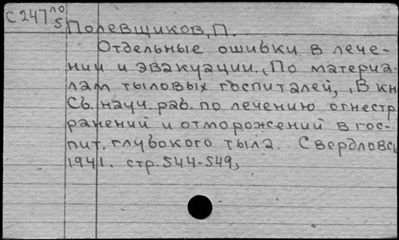 С 247 по
5
Полевщиков, П.
Отдельные ошибки в лече-
нии и эвакуации. (По материа-
лам тыловых госпиталей, В кн
Сб. науч. раб. по лечению огнестр
ранений и отморожений в гос-
пит. глубокого тыла. Свердловс
1941. стр. 544-549,